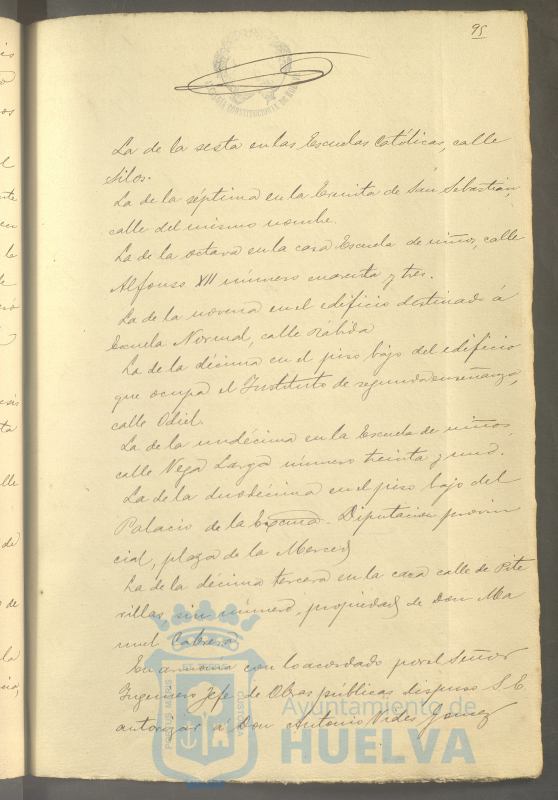 95
La de la sesta en las Escuelas Católicas, calle
Silos.
La de la séptima en la Ermita de San Sebastián,
calle del mismo nombre.
La de la octava en la casa Escuela de niños, calle
Alfonso XII número cuarenta y tres.
La de la novena en el edificio destinado á
Escuela Normal, calle Rábida
La de la décima en el piso bajo del edificio
que ocupa el Instituto de segunda enseñanza,
calle Odiel.
La de la undécima en la Escuela de niños,
calle Vega Larga número treinta y uno.
La de la duodécima en el piso bajo del
Palacio de la Excma. Diputación provin
cial, plaza de la Merced
La de la décima tercera en la casa calle de
sin número, propiedad de Don Ma
nuel Cabrera
En armonía con lo acordado por el Señor
Ingeniero Jefe de Obras públicas dispuso S. E.
autorizar á Don Antonio Vides Gomez
Ayuntamiento de
HUELVA